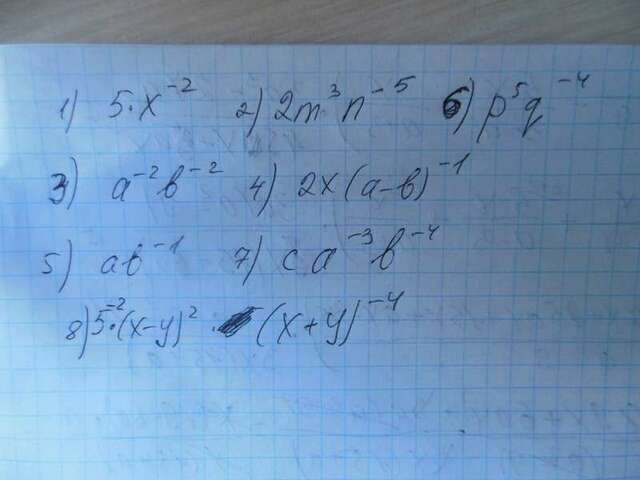 1) 5·x⁻² 2) 2m³n⁻⁵ 6) p⁵q⁻⁴
3) a⁻²b⁻² 4) 2x(a-b)⁻¹
5) ab⁻¹ 7) ca⁻³b⁻⁴
8) 5⁻²·(x-y)² · (x+y)⁻⁴